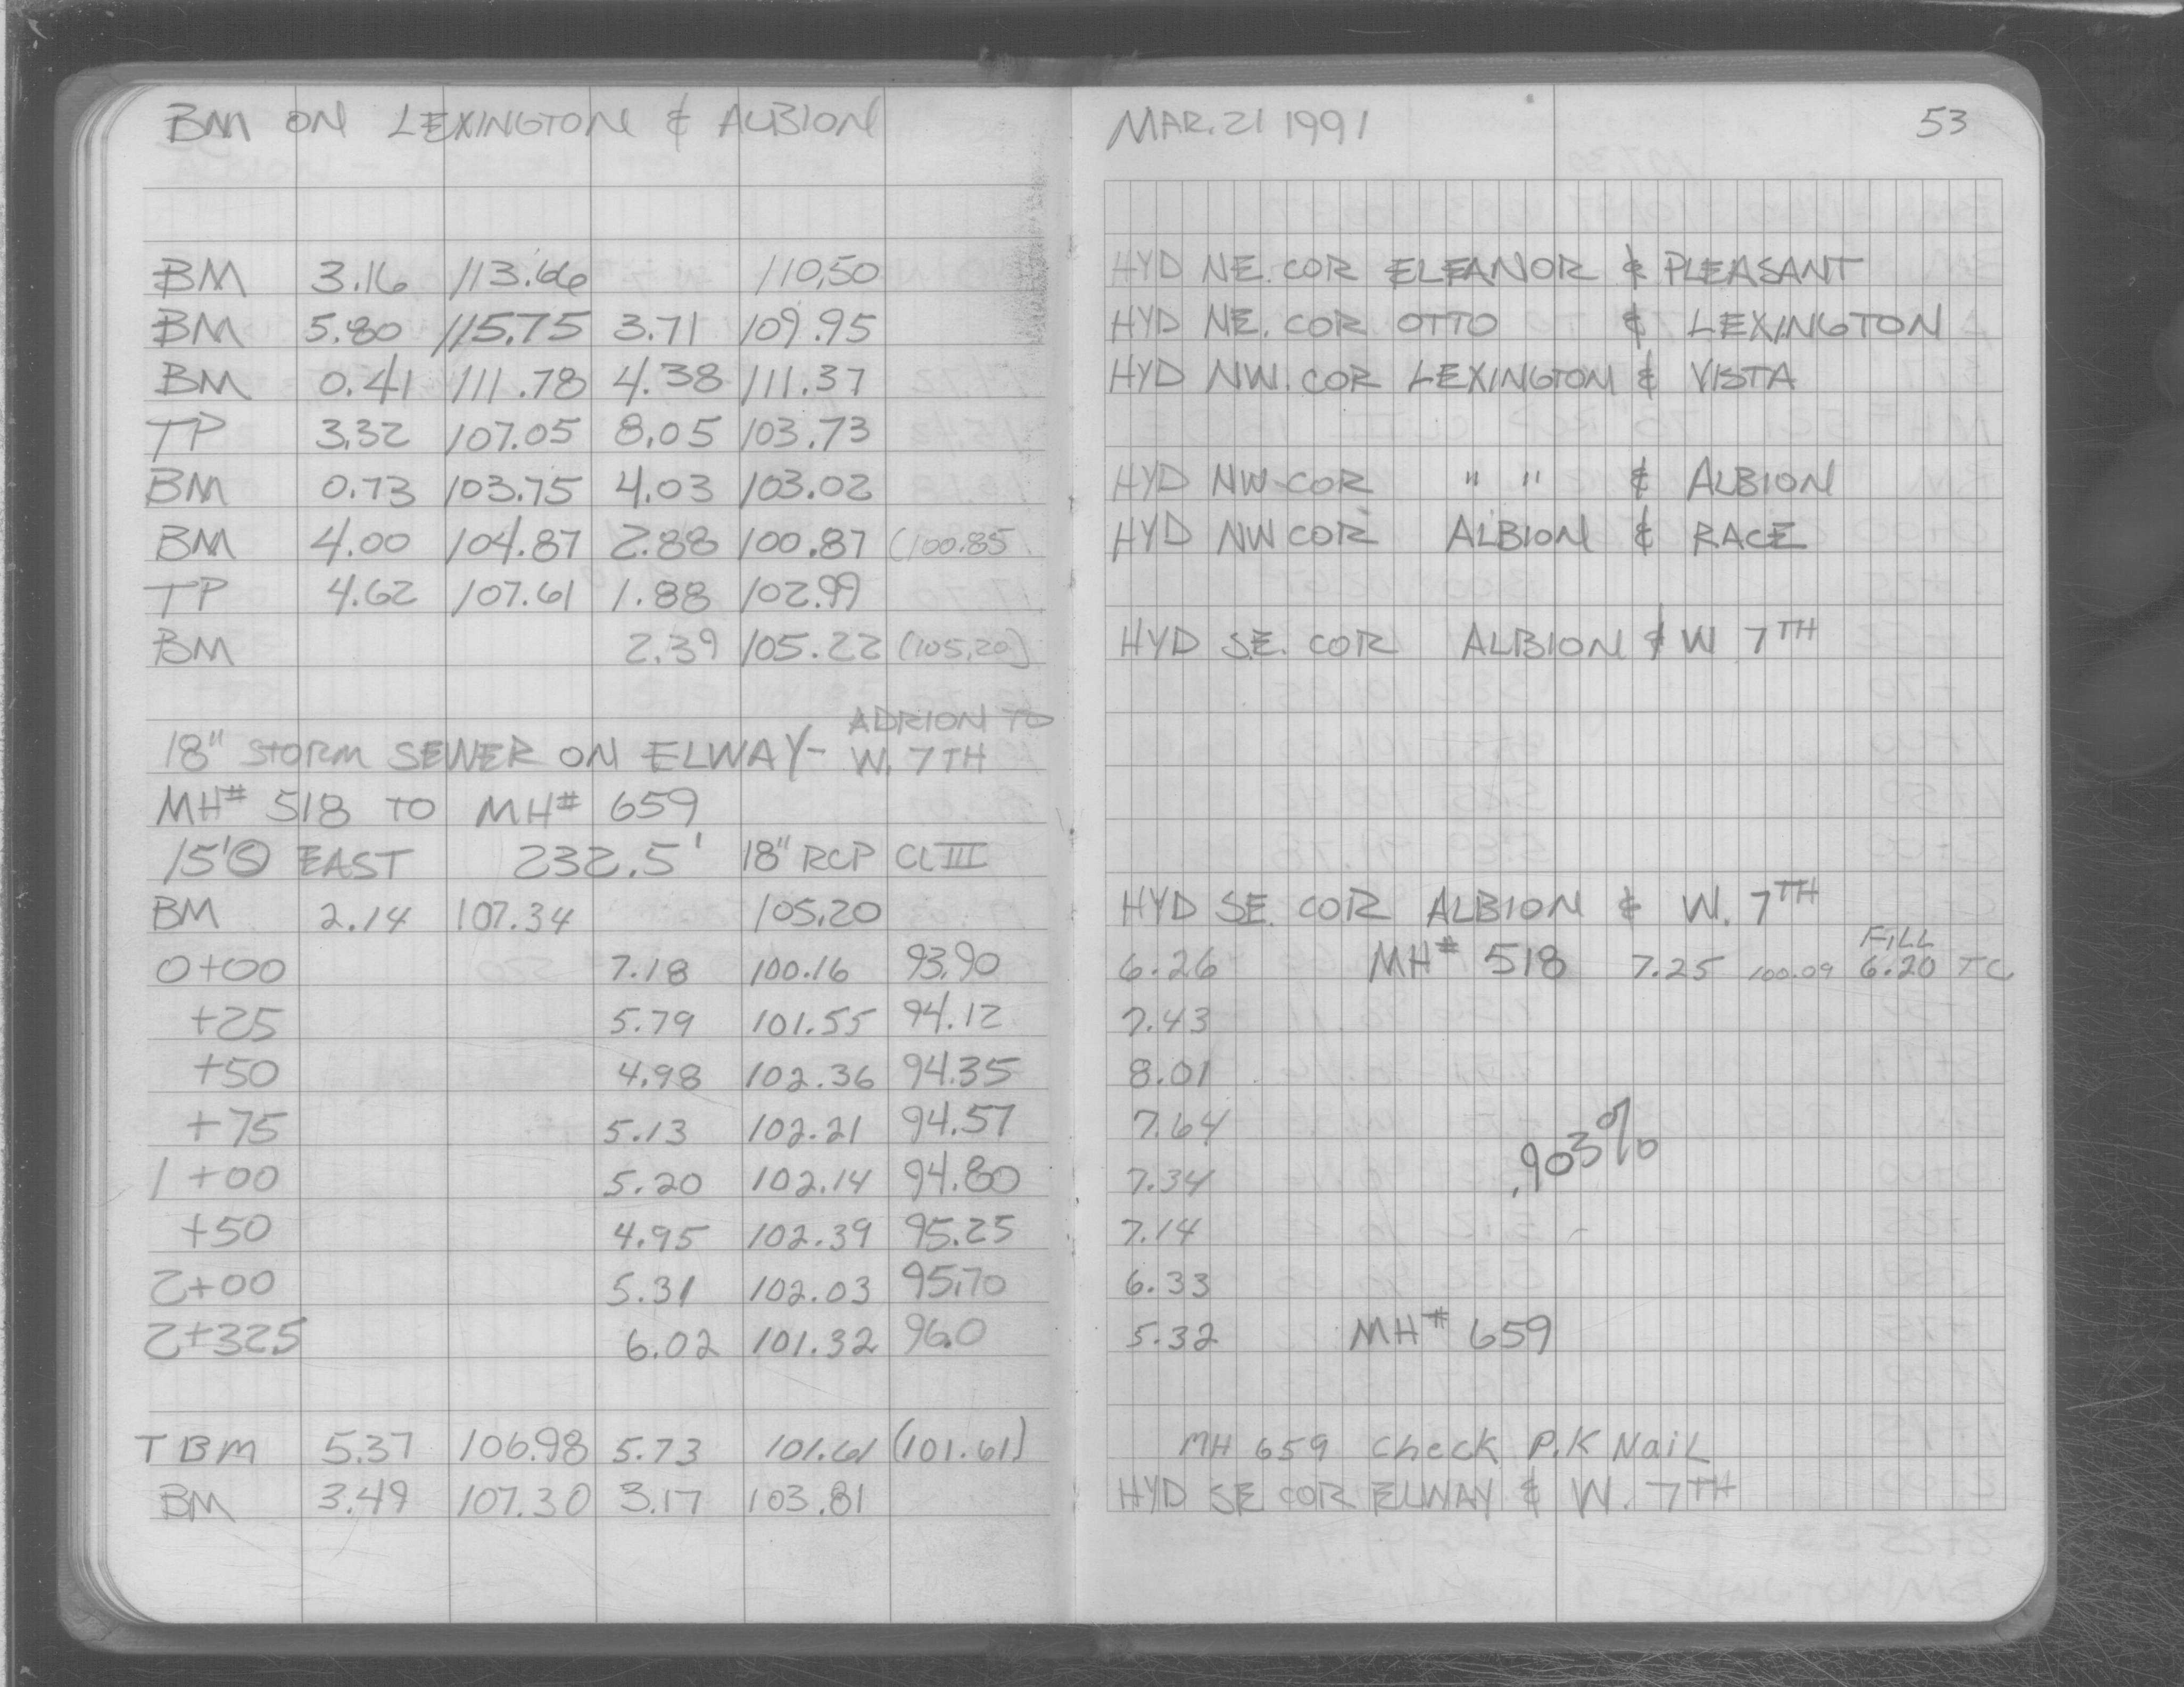 BM ON LEXINGTON & ALBION
BM 3.16 113.66 110.50
BM 5.80 115.75 3.71 109.95
BM 0.41 111.78 4.38 111.37
TP 3.32 107.05 8.05 103.73
BM 0.73 103.75 4.03 103.02
BM 4.00 104.87 2.88 100.87 (100.85
TP 4.62 107.61 1.88 102.99
BM 2.39 105.22 (105.20)
18" STORM SEWER ON ELWAY- ADRION TO
W. 7TH
MH# 518 TO MH# 659
15'⊙ EAST 232.5' 18" RCP CL III
BM 2.14 107.34 105.20
0+00 7.18 100.16 93.90
+25 5.79 101.55 94.12
+50 4.98 102.36 94.35
+75 5.13 102.21 94.57
1+00 5.20 102.14 94.80
+50 4.95 102.39 95.25
2+00 5.31 102.03 95.70
2+325 6.02 101.32 96.0
TBM 5.37 106.98 5.73 101.61 (101.61)
BM 3.49 107.30 3.17 103.81
MAR. 21 1991 53
HYD NE. COR ELEANOR & PLEASANT
HYD NE. COR OTTO & LEXINGTON
HYD NW. COR LEXINGTON & VISTA
HYD NW COR " " & ALBION
HYD NW COR ALBION & RACE
HYD SE. COR ALBION & W 7TH
HYD SE. COR ALBION & W. 7TH
FILL
6.26 MH# 518 7.25 100.09 6.20 TC
7.43
8.01
7.64
.903%
7.34
7.14
6.33
5.32 MH# 659
MH 659 Check P.K NaiL
HYD SE COR ELWAY & W. 7TH